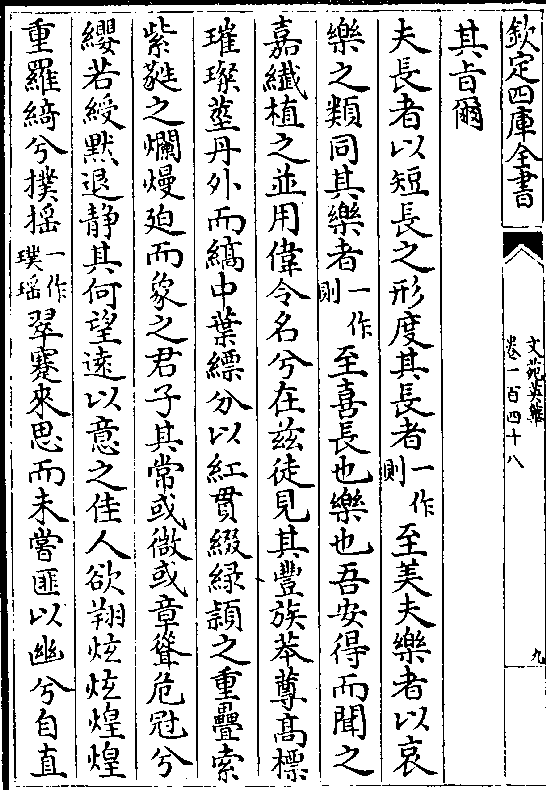 欽定四庫全書
文苑英華
卷一百四十八
九
其旨爾
夫長者以短長之形度其長者一作則至美夫樂者以哀
樂之類同其樂者一作則至喜長也樂也吾安得而聞之
嘉纖植之並用偉令名兮在茲徒見其豐族萃尊高標
璀璨莖丹外而縞中葉縹分以紅貫綴綠頴之重疊索
紫蕤之爛熳迫而象之君子其常或微或章聳危冠兮
纓若綬默退靜其何望遠以意之佳人欲翔炫炫煌煌
重羅綺兮撲摇一作璞瑶翠蹇來思而未嘗匪以幽兮自直